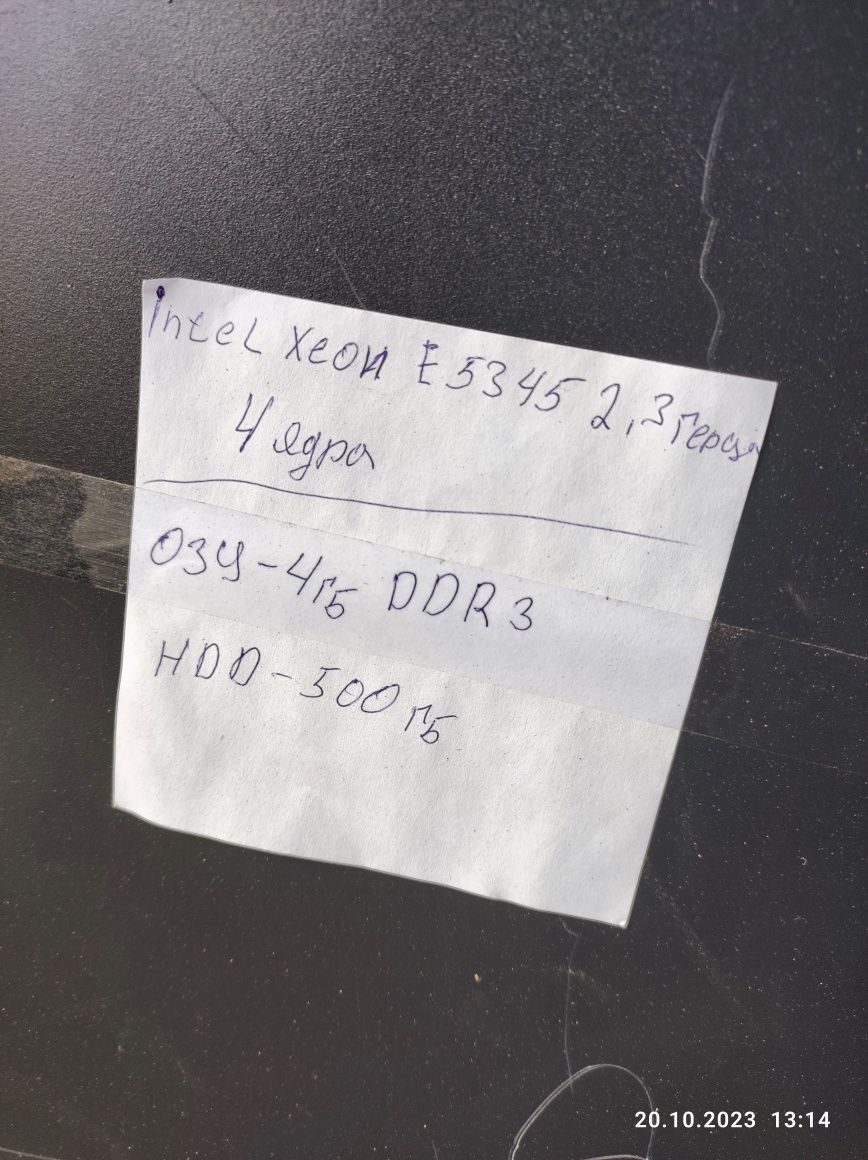 Intel Xeon E5345 2,3 герца
4 ядра
ОЗУ-4гб DDR3
HDD-500гб
20.10.2023 13:14